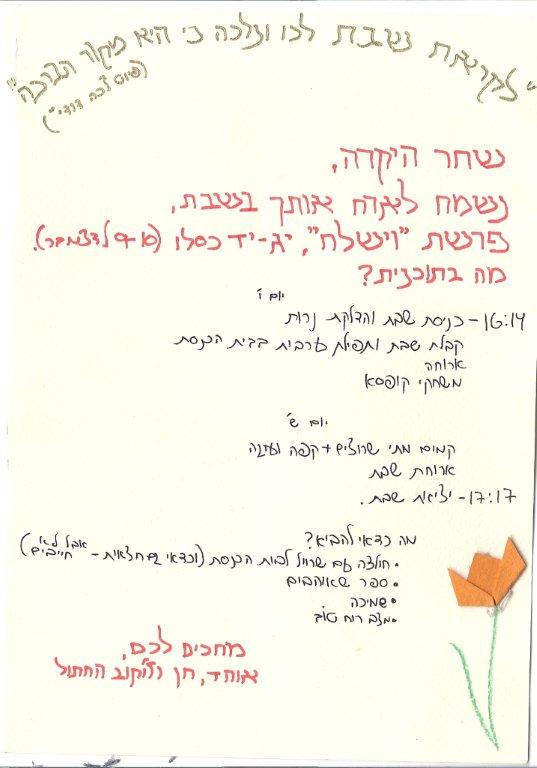 "לקראת שבת לכו ונלכה כי היא מקור הברכה"
(פיוט "לכה דודי")
שחר היקרה,
נשמח לארח אותך בשבת,
פרשת "וישלח", יג-יד כסלו (9-10 לדצמבר).
מה בתוכנית?
יום ו'
16:14 - כניסת שבת והדלקת נרות
קבלת שבת ותפילת ערבית בבית הכנסת
ארוחה
משחקי קופסא
יום ש'
קמים מתי שרוצים + קפה ועוגה
ארוחת שבת
17:17 - יציאת שבת.
מה כדאי להביא?
• חולצה עם שרוול לבית הכנסת (וכדאי גם חצאית - אבל לא חייבים)
• ספר שאוהבים
• שמיכה
• מצב רוח טוב
מחכים לכם,
אוהד, חן החתול